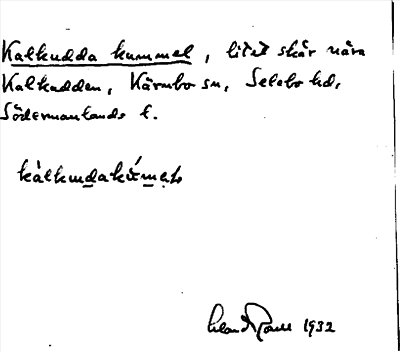 Kalkudda kummel, litet skär nära
Kalkudden, Kärnbo sn, Selebo hd,
Södermanlands l.
kàlkudakúməls
1932